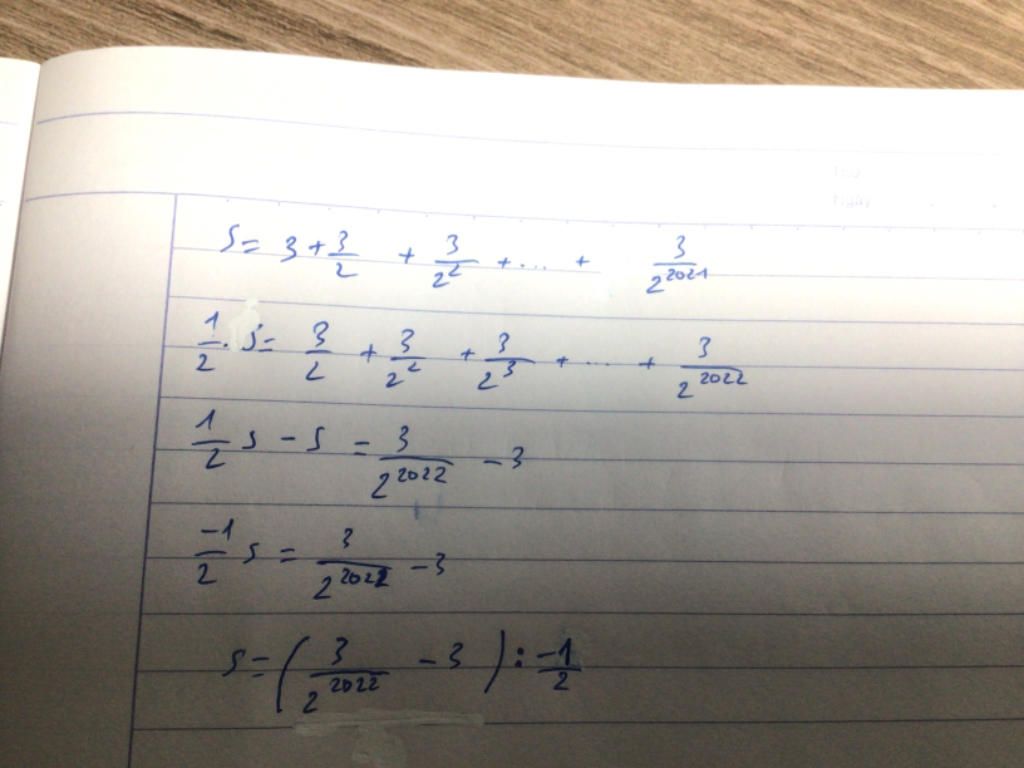 Thứ
Ngày
S = 3 + 3/2 + 3/2^2 + ... + 3/2^2021
1/2 . S = 3/2 + 3/2^2 + 3/2^3 + .... + 3/2^2022
1/2 S - S = 3/2^2022 - 3
-1/2 S = 3/2^2022 - 3
S = (3/2^2022 - 3) : -1/2